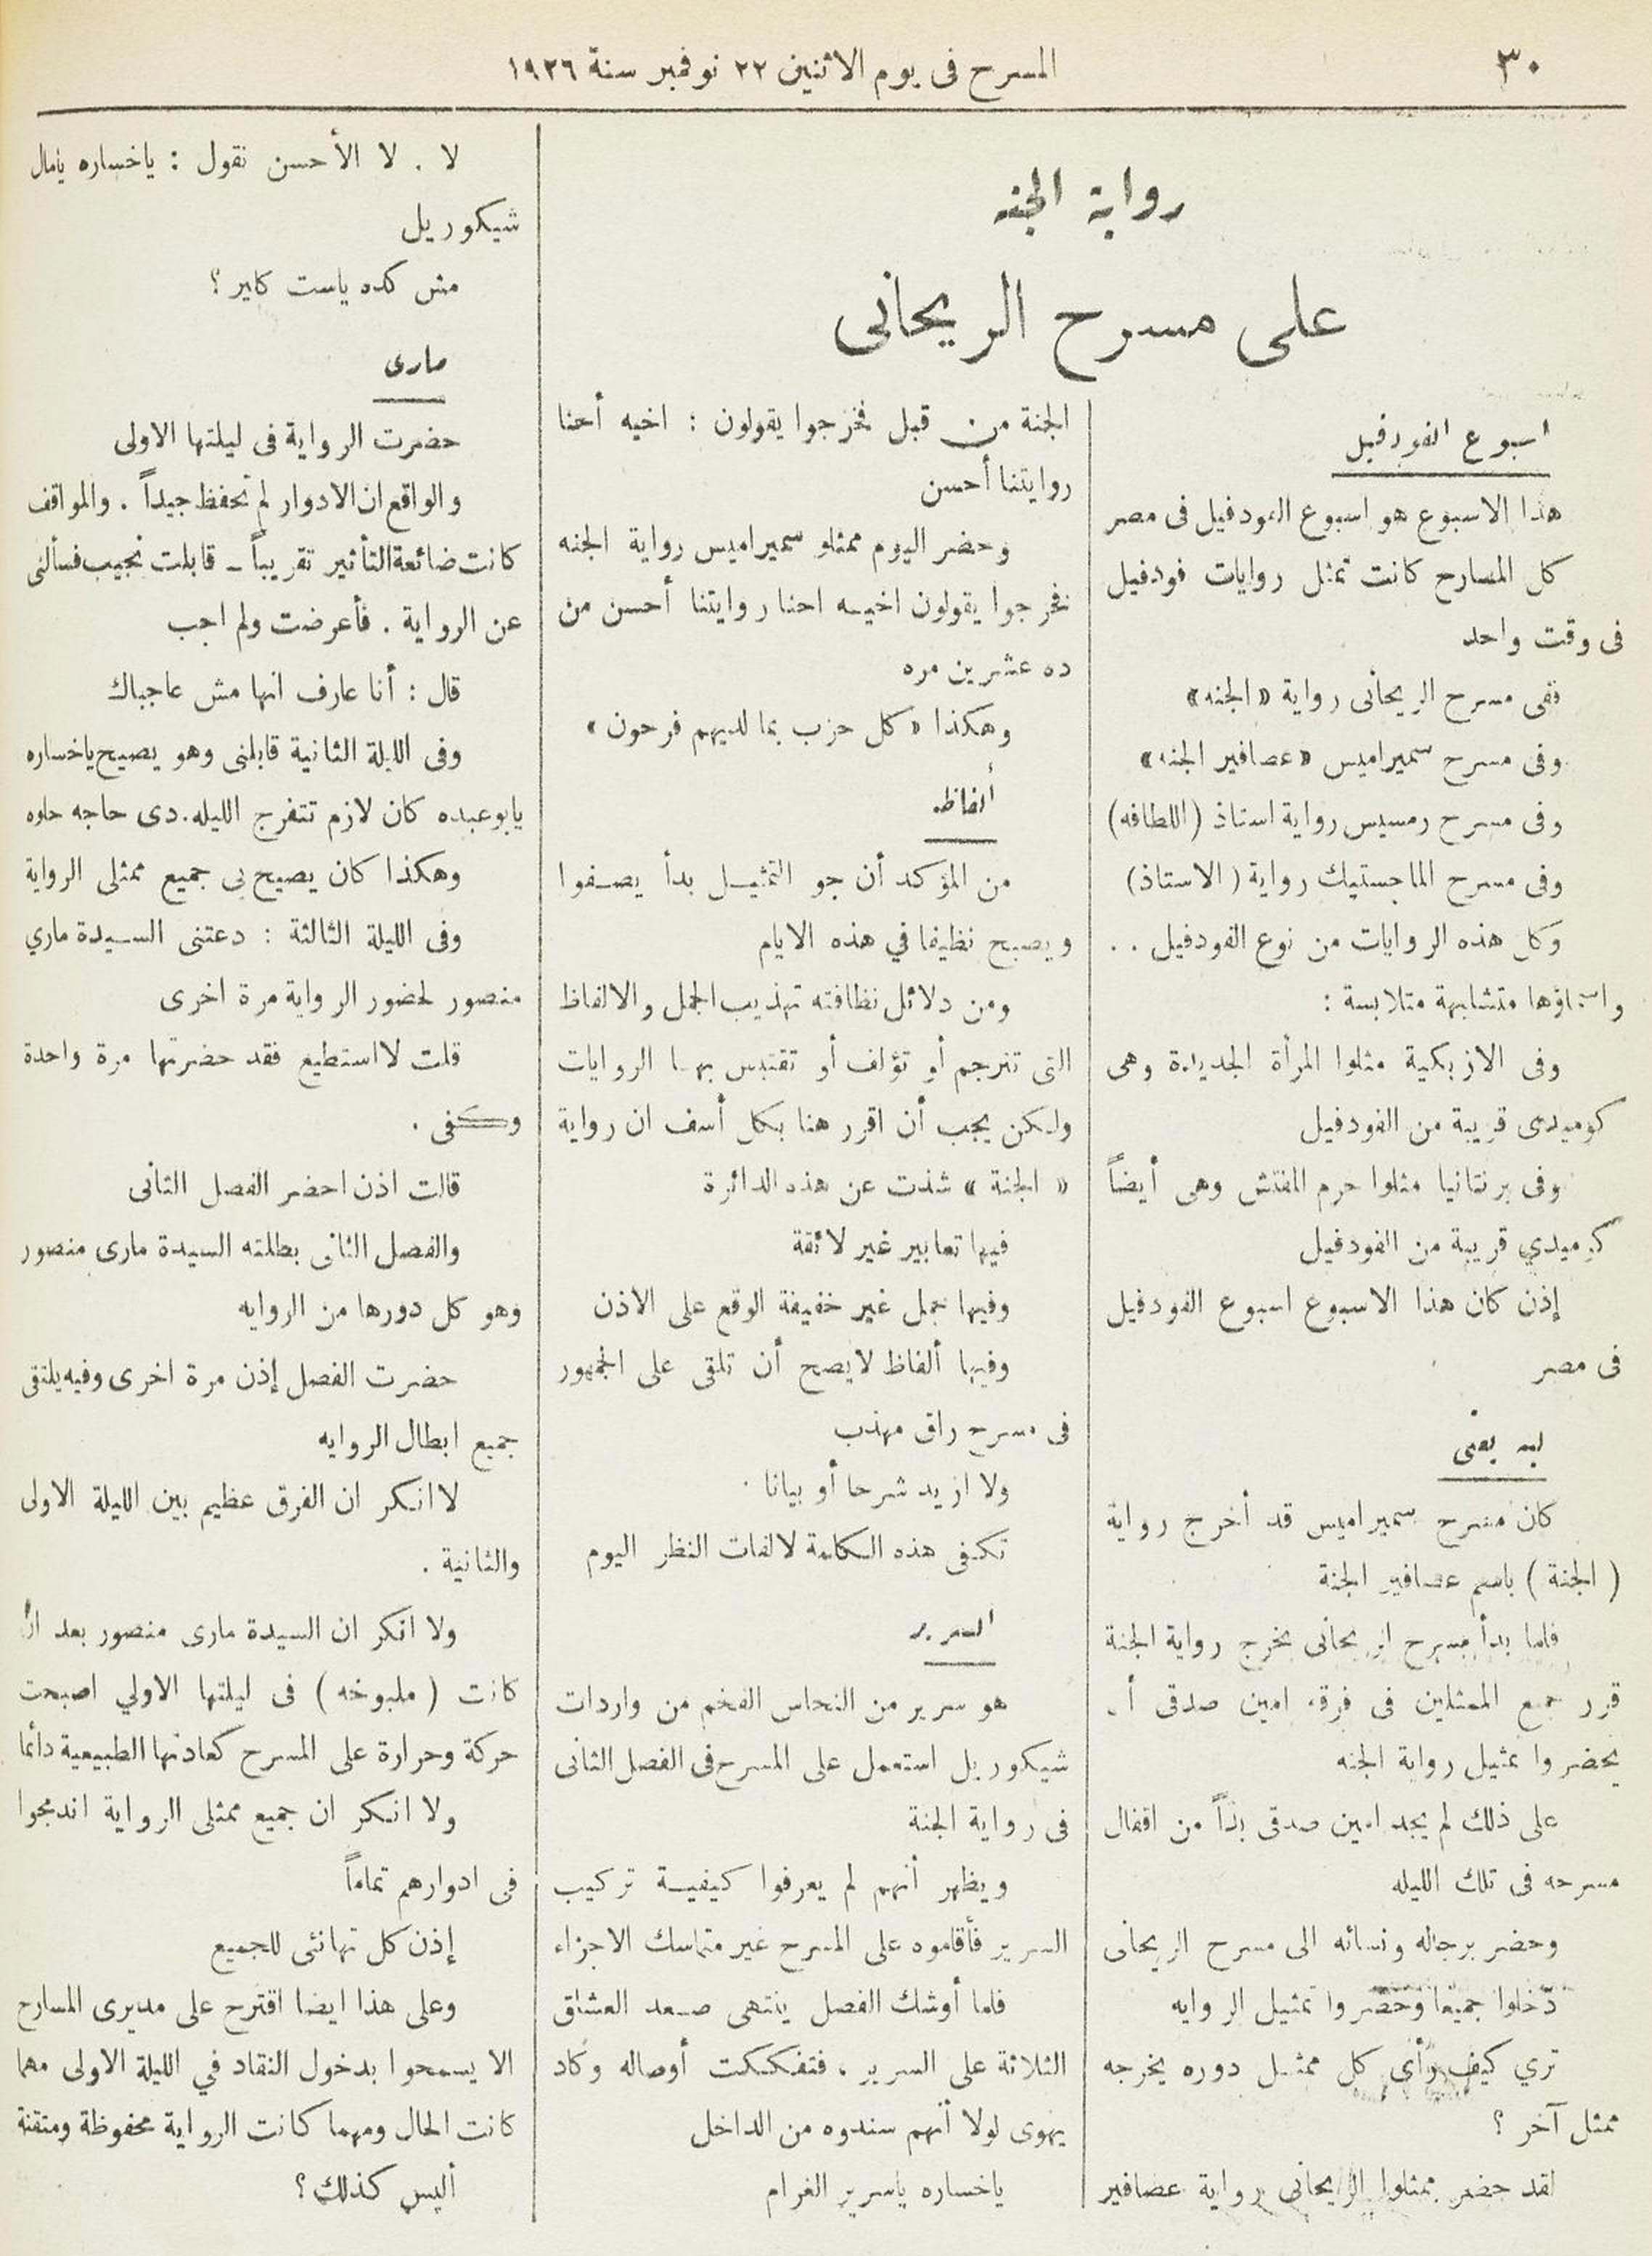 ٣٠
المسرح فى يوم الاثنين ٢٢ نوفمبر سنة ١٩٢٦
رواية الجنه
على مسرح الريحانى
اسبوع الفودفيل
هذا الاسبوع هو اسبوع الفودفيل فى مصر
كل المسارح كانت تمثل روايات فودفيل
فى وقت واحد
ففى مسرح الريحانى رواية «الجنه»
وفى مسرح سميراميس «عصافير الجنه»
وفى مسرح رمسيس رواية استاذ (اللطافه)
وفى مسرح الماجستيك رواية (الاستاذ)
وكل هذه الروايات من نوع الفودفيل . .
واسماؤها متشابهة متلابسة :
وفى الازبكية مثلوا المرأة الجديدة وهى
كوميدى قريبة من الفودفيل
وفى برنتانيا مثلوا حرم المفتش وهى أيضاً
كوميدي قريبة من الفودفيل
إذن كان هذا الاسبوع اسبوع الفودفيل
فى مصر
ليه يعنى
كان مسرح سميراميس قد أخرج رواية
( الجنة ) باسم عصافير الجنة
فلما بدأ مسرح الريحانى يخرج رواية الجنة
قرر جميع الممثلين فى فرقة امين صدقى أن
يحضروا تمثيل رواية الجنه
على ذلك لم يجد امين صدقى بداً من اقفال
مسرحه فى تلك الليله
وحضر برجاله ونسائه الى مسرح الريحانى
دخلوا جميعا وحضروا تمثيل الروايه
تري كيف رأى كل ممثل دوره يخرجه
ممثل آخر ؟
لقد حضر ممثلوا الريحانى رواية عصافير
الجنة من قبل فخرجوا يقولون : اخيه أحنا
روايتنا أحسن
وحضر اليوم ممثلو سميراميس رواية الجنه
فخرجوا يقولون اخيه احنا روايتنا أحسن من
ده عشرين مره
وهكذا «كل حزب بما لديهم فرحون»
ألفاظ
من المؤكد أن جو التمثيل بدأ يصفوا
ويصبح نظيفا في هذه الايام
ومن دلائل نظافته تهذيب الجمل والالفاظ
التى تترجم أو تؤلف أو تقتبس بها الروايات
ولكن يجب أن اقرر هنا بكل أسف ان رواية
« الجنة » شذت عن هذه الدائرة
فيها تعابير غير لائقة
وفيها جمل غير خفيفة الوقع على الاذن
وفيها ألفاظ لايصح أن تلقى على الجمهور
فى مسرح راق مهذب
ولا ازيد شرحا أو بيانا .
تكفى هذه الكلمة لالفات النظر اليوم
السرير
هو سرير من النحاس الفخم من واردات
شيكوريل استعمل على المسرح فى الفصل الثانى
فى رواية الجنة
ويظهر أنهم لم يعرفوا كيفية تركيب
السرير فأقاموه على المسرح غير متماسك الاجزاء
فلما أوشك الفصل ينتهى صعد العشاق
الثلاثة على السرير ، فتفككت أوصاله وكاد
يهوى لولا أنهم سندوه من الداخل
ياخساره ياسرير الغرام
لا . لا الأحسن نقول : ياخساره يامال
شيكوريل
مش كده ياست كابر ؟
مارى
حضرت الرواية فى ليلتها الاولى
والواقع ان الادوار لم تحفظ جيداً . والمواقف
كانت ضائعة التأثير تقريباً ـ قابلت نجيب فسألنى
عن الرواية . فأعرضت ولم اجب
قال : أنا عارف انها مش عاجباك
وفى الليلة الثانية قابلنى وهو يصيح ياخساره
يابوعبده كان لازم تتفرج الليله. دى حاجه حلوه
وهكذا كان يصيح بى جميع ممثلى الرواية
وفى الليلة الثالثة : دعتنى السيدة ماري
منصور لحضور الرواية مرة اخرى
قلت لا استطيع فقد حضرتها مرة واحدة
وكفى .
قالت اذن احضر الفصل الثانى
والفصل الثانى بطلته السيدة مارى منصور
وهو كل دورها من الروايه
حضرت الفصل إذن مرة اخرى وفيه يلتقى
جميع ابطال الروايه
لا انكر ان الفرق عظيم بين الليلة الاولى
والثانية .
ولا انكر ان السيدة مارى منصور بعد ان
كانت ( ملبوخه ) فى ليلتها الاولي اصبحت
حركة وحرارة على المسرح كعادتها الطبيعية دائما
ولا انكر ان جميع ممثلى الرواية اندمجوا
فى ادوارهم تماماً
إذن كل تهانئى للجميع
وعلى هذا ايضا اقترح على مديرى المسارح
الا يسمحوا بدخول النقاد في الليلة الاولى مهما
كانت الحال ومهما كانت الرواية محفوظة ومتقنة
أليس كذلك ؟